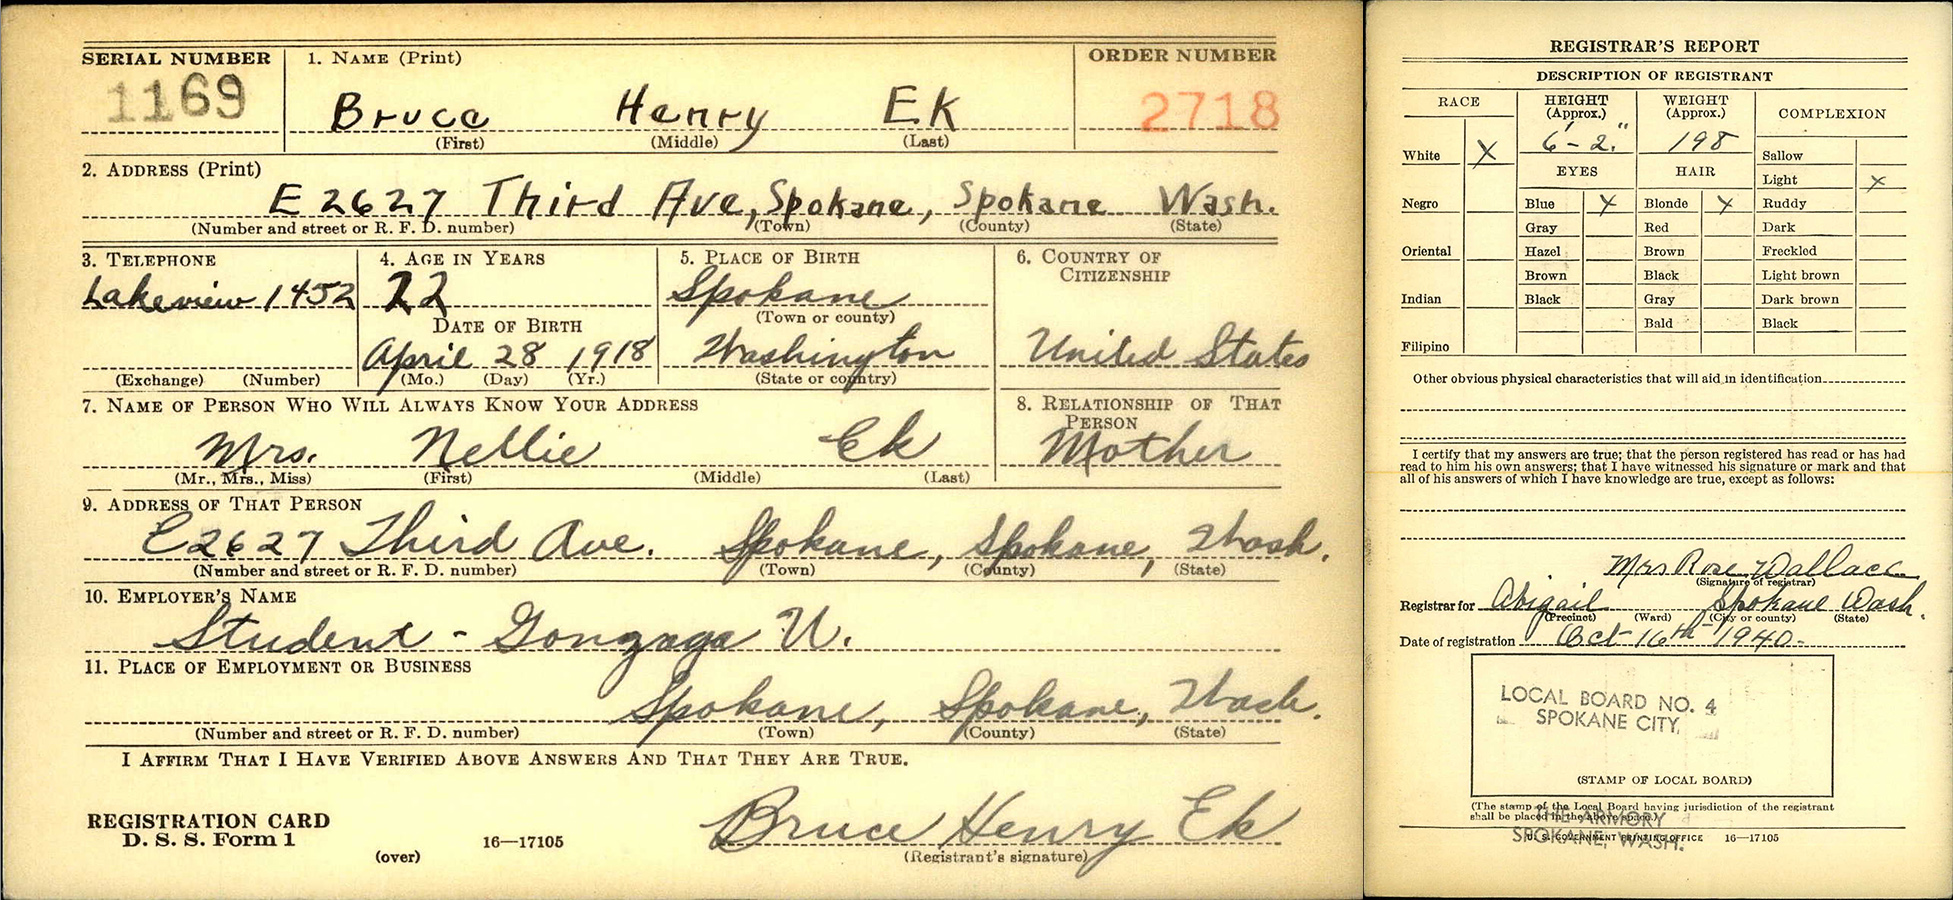 SERIAL NUMBER 1. NAME (Print) ORDER NUMBER
1169 Bruce Henry Ek 2718
(First) (Middle) (Last)
2. ADDRESS (Print)
E 2627 Third Ave, Spokane, Spokane Wash.
(Number and street or R. F. D. number) (Town) (County) (State)
3. TELEPHONE 4. AGE IN YEARS 5. PLACE OF BIRTH 6. COUNTRY OF CITIZENSHIP
Lakeview 1452 22 Spokane
(Town or county)
DATE OF BIRTH
April 28 1918 Washington United States
(Exchange) (Number) (Mo.) (Day) (Yr.) (State or country)
7. NAME OF PERSON WHO WILL ALWAYS KNOW YOUR ADDRESS 8. RELATIONSHIP OF THAT PERSON
Mrs. Nellie Ek Mother
(Mr., Mrs., Miss) (First) (Middle) (Last)
9. ADDRESS OF THAT PERSON
E2627 Third Ave. Spokane, Spokane, Wash.
(Number and street or R. F. D. number) (Town) (County) (State)
10. EMPLOYER'S NAME
Student - Gonzaga U.
11. PLACE OF EMPLOYMENT OR BUSINESS
Spokane, Spokane, Wash.
(Number and street or R. F. D. number) (Town) (County) (State)
I AFFIRM THAT I HAVE VERIFIED ABOVE ANSWERS AND THAT THEY ARE TRUE.
REGISTRATION CARD
D. S. S. Form 1 16—17105 Bruce Henry Ek
(over) (Registrant's signature)
REGISTRAR'S REPORT
DESCRIPTION OF REGISTRANT
RACE HEIGHT (Approx.) WEIGHT (Approx.) COMPLEXION
6'-2" 198
White X Sallow
EYES HAIR Light X
Negro Blue X Blonde X Ruddy
Gray Red Dark
Oriental Hazel Brown Freckled
Brown Black Light brown
Indian Black Gray Dark brown
Bald Black
Filipino
Other obvious physical characteristics that will aid in identification
I certify that my answers are true; that the person registered has read or has had
read to him his own answers; that I have witnessed his signature or mark and that
all of his answers of which I have knowledge are true, except as follows:
Mrs Rose Wallace
(Signature of registrar)
Registrar for Abigail Spokane Wash.
(Precinct) (Ward) (City or county) (State)
Date of registration Oct 16th 1940-
LOCAL BOARD NO. 4
SPOKANE CITY,
(STAMP OF LOCAL BOARD)
(The stamp of the Local Board having jurisdiction of the registrant
shall be placed in the above space.)
THE ARMORY
U. S. GOVERNMENT PRINTING OFFICE 16—17105
SPOKANE, WASH.